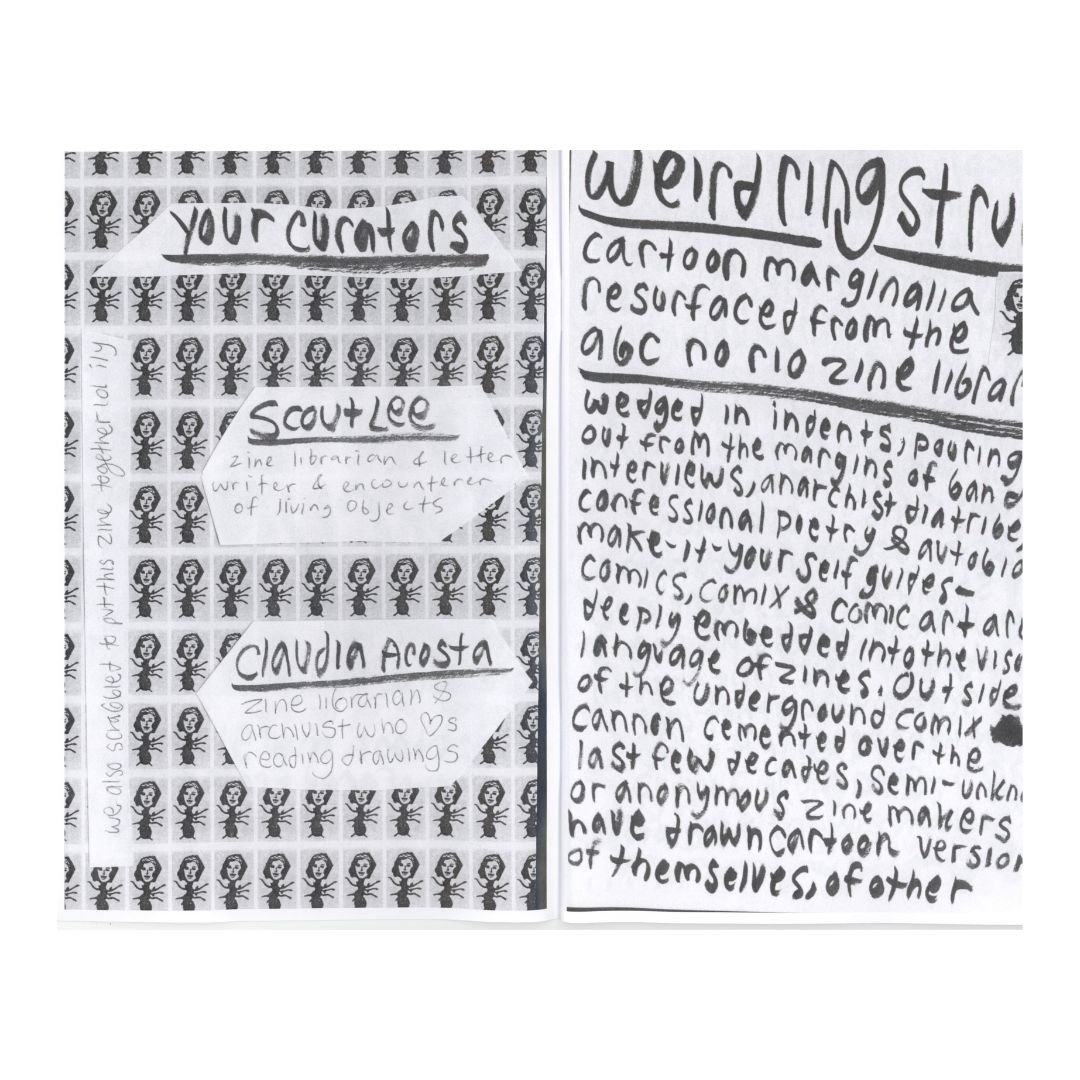 your curators
we also scrabbled to put this zine together lol ily
Scout Lee
zine librarian & letter
writer & encounterer
of living objects
Claudia Acosta
zine librarian &
archivist who ♡s
reading drawings
weird ring stru
cartoon marginalia
resurfaced from the
abc no rio zine librar
wedged in indents, pouring
out from the margins of band
interviews, anarchist diatribe,
confessional poetry & autobio
make-it-your self guides-
comics, comix & comic art are
deeply embedded into the visu
language of zines. Outside
of the underground comix
cannon cemented over the
last few decades, semi-unkn
or anonymous zine makers
have drawn cartoon version
of themselves, of other